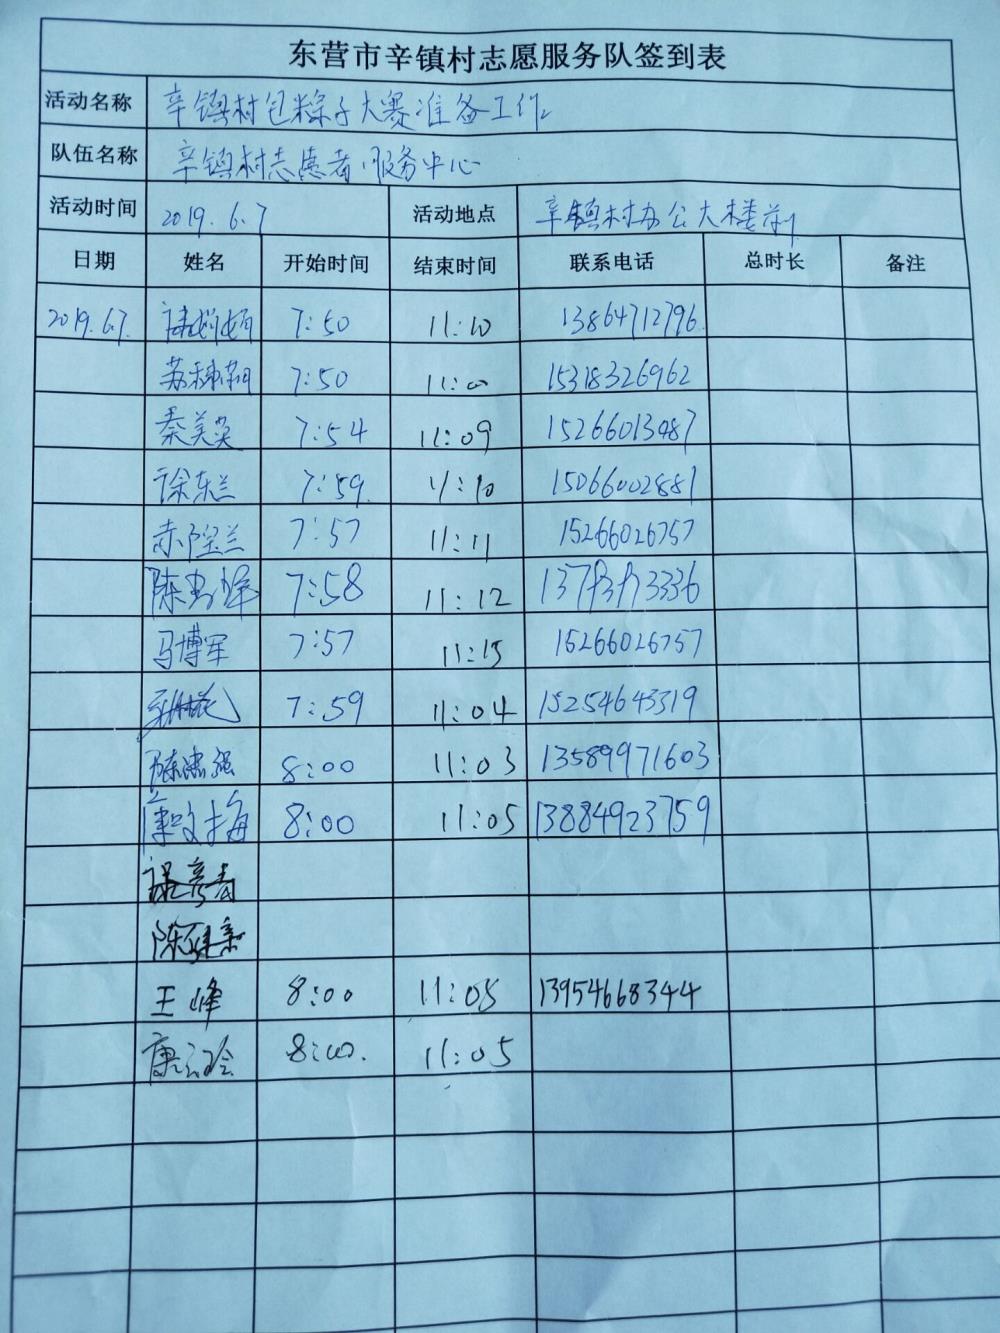 东营市辛镇村志愿服务队签到表
活动名称 辛镇村包粽子大赛准备工作
队伍名称 辛镇村志愿者服务中心
活动时间 2019.6.7 活动地点 辛镇村办公大楼前
日期 姓名 开始时间 结束时间 联系电话 总时长 备注
2019.6.7. 7:50 11:10 13864712796
苏 7:50 11:00 15318326962
秦美英 7:54 11:09 15266013487
徐东兰 7:59 11:10 15066002881
宝兰 7:57 11:11 15266026757
陈 7:58 11:12
马博军 7:57 11:15 15266026757
7:59 11:04 15254643319
陈 8:00 11:03 13589971603
8:00 11:05 13884923759
陈
王峰 8:00 11:05 13954668344
唐 8:00. 11:05